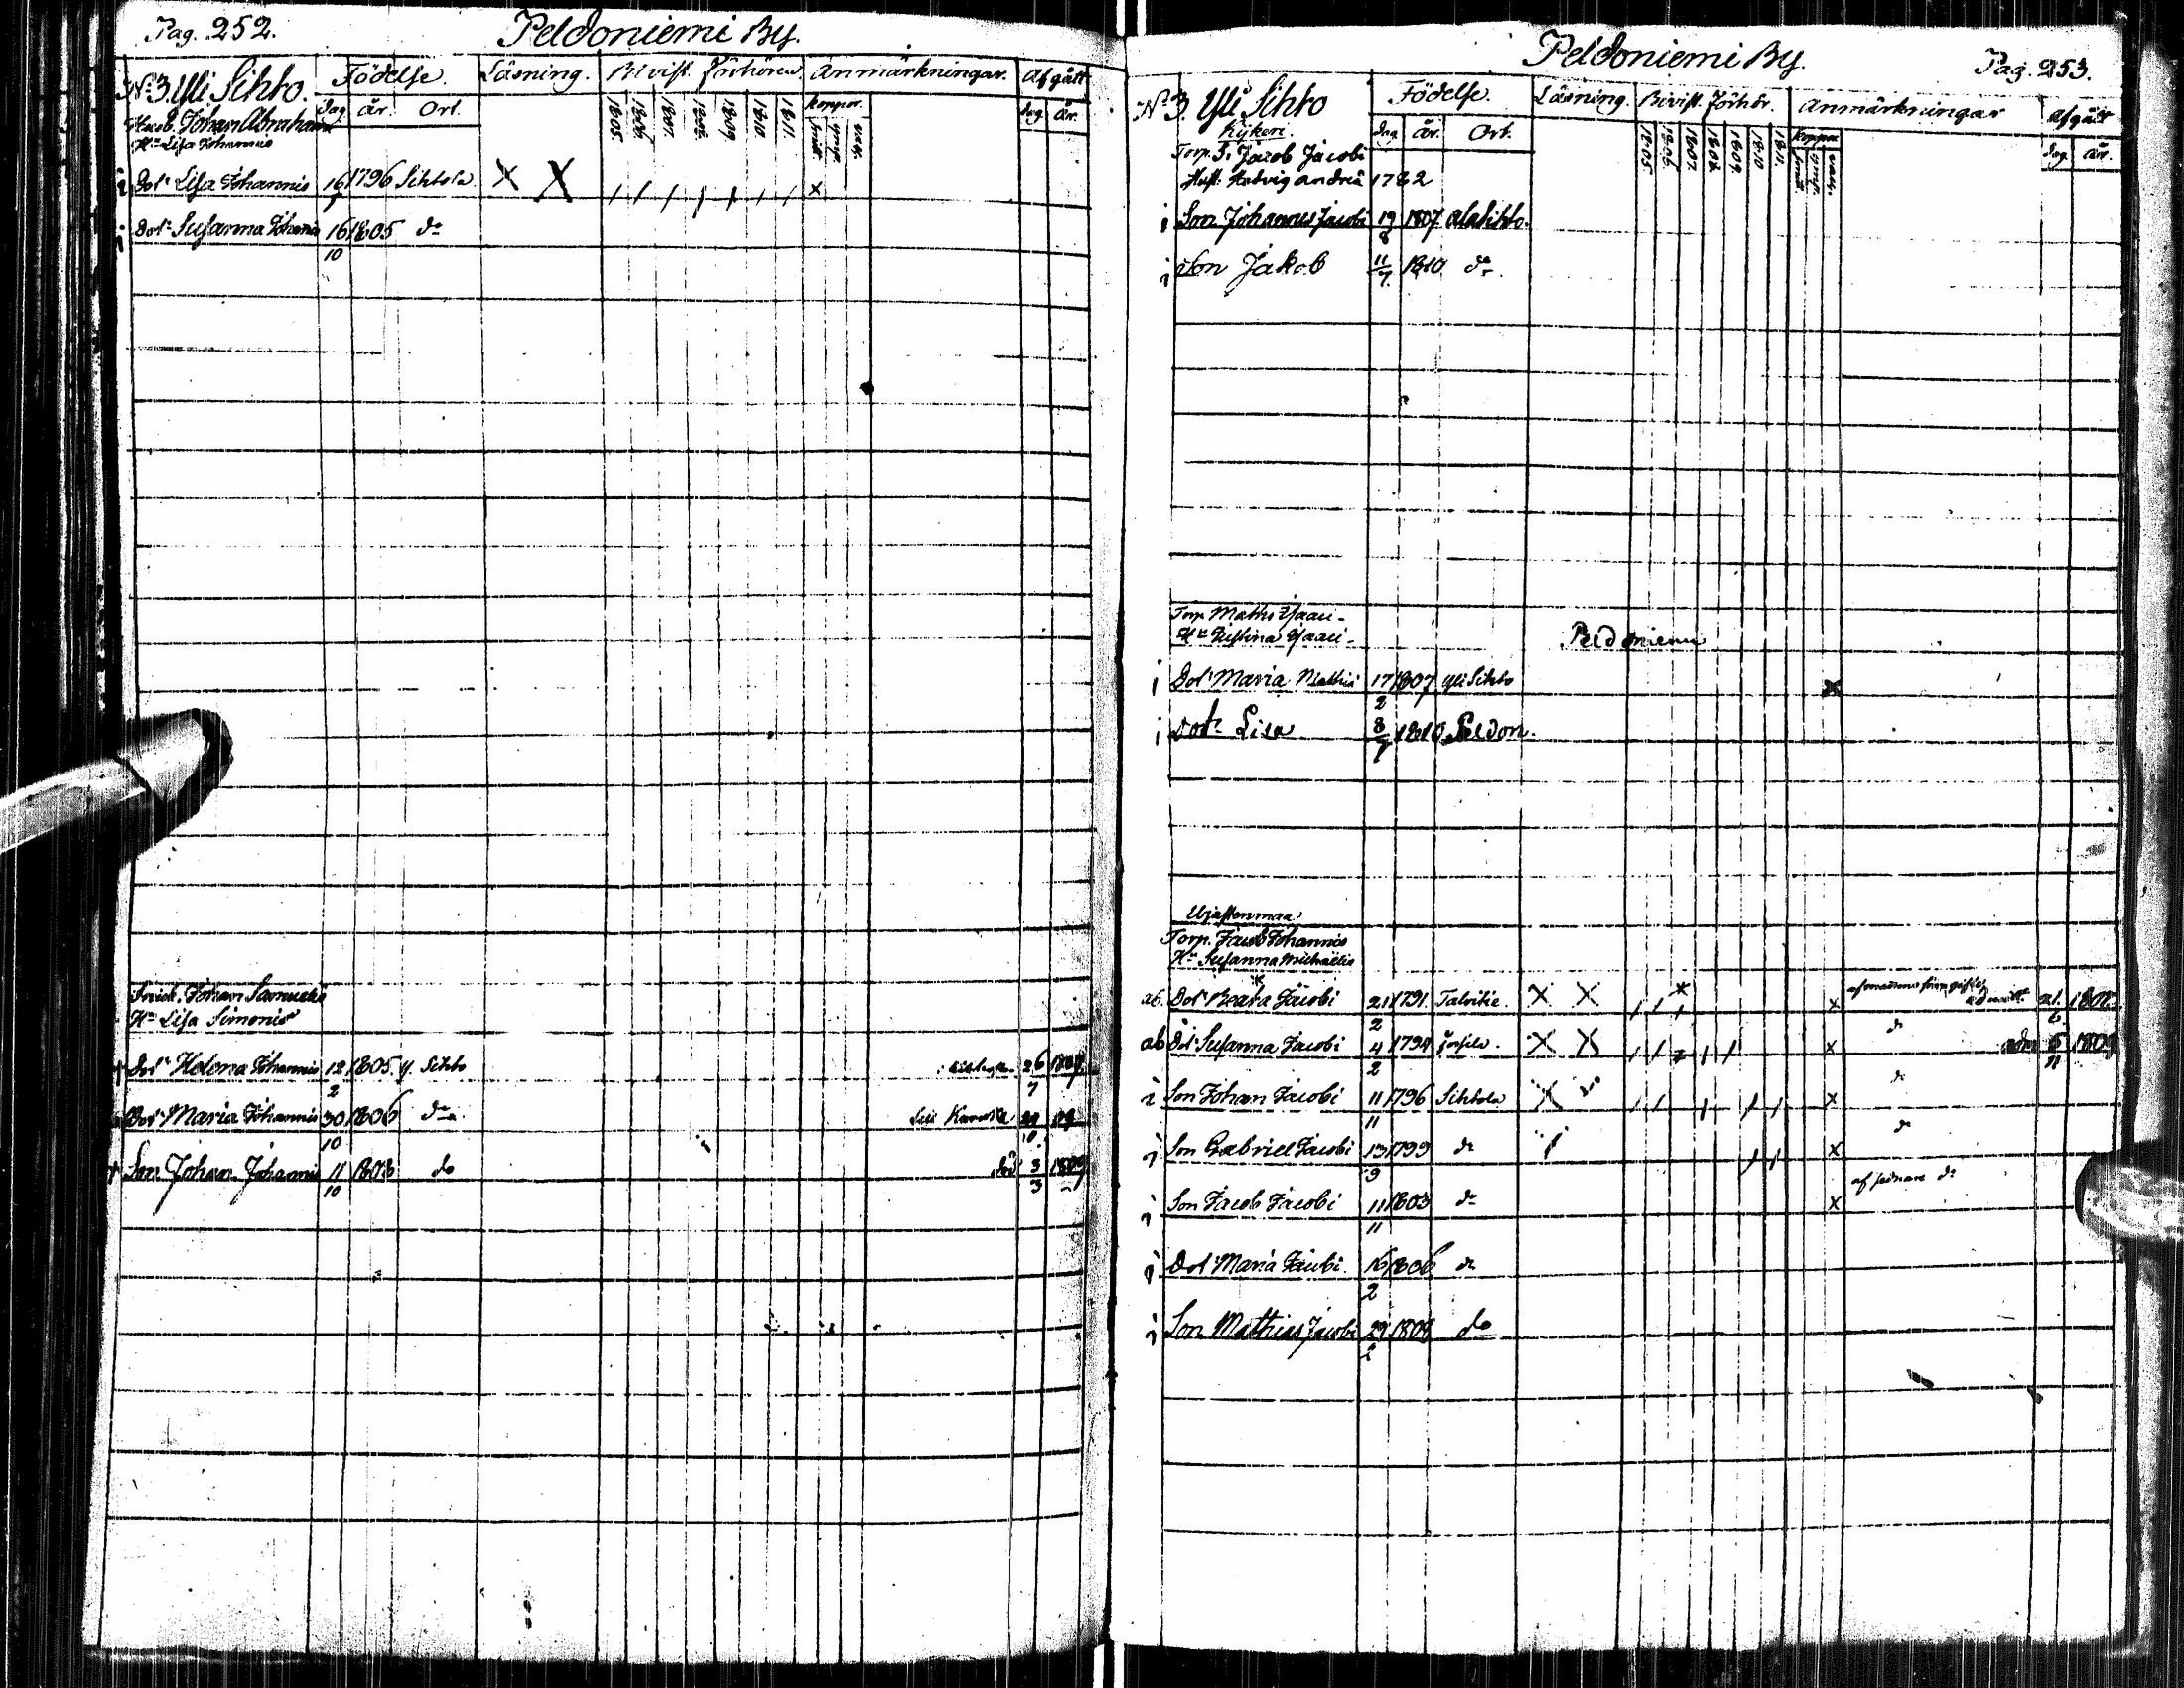 Pag. 252.
Peldoniemi By.
N:o 3. Yli Sihto. Födelse. Läsning. Bivist. Förhören. Anmärkningar. Afgått
Dag. år. Ort. 1805. 1806. 1807. 1808. 1809. 1810. 1811. koppor. dag. år.
Husb. Johan Abraham
H:u Lisa Johannis
i Dot:r Lisa Johannis 16/7 1796 Sihtola X X / / / / / / / x
i Dot:r Susanna Johannis 16/10 1805 d:o
Johan Samuelis
H:u Lisa Simonis
† Dot:r Helena Johannis 12/2 1805 y. Sihto 26/7 1807.
Dot:r Maria Johannis 30/10 1806 d:o
† Son Johan Johannis 11/10 1808 do 3/3 1809
Peldoniemi By.
Pag. 253.
N:o 3. Yli Sihto Födelse. Läsning. Bivist. Förhör. Anmärkningar Afgått
dag. år. Ort. 1805 1806 1807 1808 1809 1810 1811. koppor dag. år.
Torp. S. Jacob Jacobi
Hust. Hedvig Andreæ 1782
i Son Johannes Jacobi 19/8 1807 Ala Sihto.
i Son Jakob 11/7 1810 d:o
Torp Matts Isaaci
H:u Justina Isaaci Peldoniemi
i Dot:r Maria Mathiæ 17/2 1807 yli Sihto x
i Dot:r Lisa 8/7 1810 Peldon.
Torp. Jacob Johannis
H:u Susanna Michaelis
ab. Dot:r Beata Jacobi 21/2 1791. Talvitie. X X / / / x
ab Dot:r Susanna Jacobi 4/2 1794 X X / / / / / x d:o 1809
i Son Johan Jacobi 11/11 1796 Sihtola X / / / / / x d:o
i Son Gabriel Jacobi 13/9 1799 d:o / / x d:o
i Son Jacob Jacobi 11/11 1803 d:o x d:o
i Dot:r Maria Jacobi. 16/2 1806 d:o
i Son Mathias Jacobi 29 1808 do